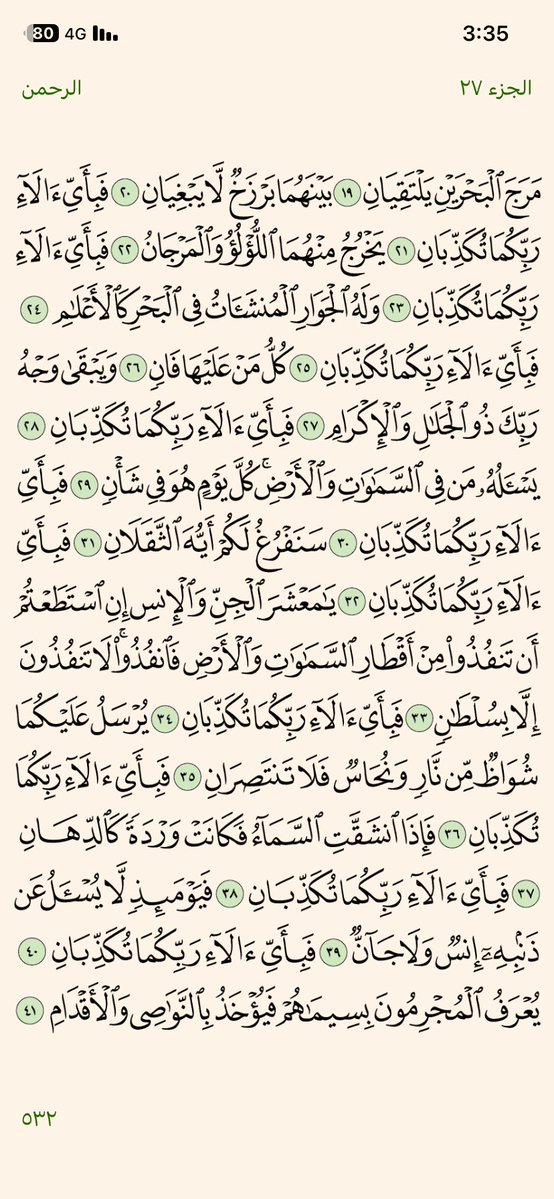 80 4G 3:35
الجزء ٢٧ الرحمن
مَرَجَ ٱلْبَحْرَيْنِ يَلْتَقِيَانِ ١٩ بَيْنَهُمَا بَرْزَخٌ لَّا يَبْغِيَانِ ٢٠ فَبِأَىِّ ءَالَآءِ
رَبِّكُمَا تُكَذِّبَانِ ٢١ يَخْرُجُ مِنْهُمَا ٱللُّؤْلُؤُ وَٱلْمَرْجَانُ ٢٢ فَبِأَىِّ ءَالَآءِ
رَبِّكُمَا تُكَذِّبَانِ ٢٣ وَلَهُ ٱلْجَوَارِ ٱلْمُنشَـَٔاتُ فِى ٱلْبَحْرِ كَٱلْأَعْلَـٰمِ ٢٤
فَبِأَىِّ ءَالَآءِ رَبِّكُمَا تُكَذِّبَانِ ٢٥ كُلُّ مَنْ عَلَيْهَا فَانٍ ٢٦ وَيَبْقَىٰ وَجْهُ
رَبِّكَ ذُو ٱلْجَلَـٰلِ وَٱلْإِكْرَامِ ٢٧ فَبِأَىِّ ءَالَآءِ رَبِّكُمَا تُكَذِّبَانِ ٢٨
يَسْـَٔلُهُۥ مَن فِى ٱلسَّمَـٰوَٰتِ وَٱلْأَرْضِ ۚ كُلَّ يَوْمٍ هُوَ فِى شَأْنٍ ٢٩ فَبِأَىِّ
ءَالَآءِ رَبِّكُمَا تُكَذِّبَانِ ٣٠ سَنَفْرُغُ لَكُمْ أَيُّهَ ٱلثَّقَلَانِ ٣١ فَبِأَىِّ
ءَالَآءِ رَبِّكُمَا تُكَذِّبَانِ ٣٢ يَـٰمَعْشَرَ ٱلْجِنِّ وَٱلْإِنسِ إِنِ ٱسْتَطَعْتُمْ
أَن تَنفُذُوا۟ مِنْ أَقْطَارِ ٱلسَّمَـٰوَٰتِ وَٱلْأَرْضِ فَٱنفُذُوا۟ ۚ لَا تَنفُذُونَ
إِلَّا بِسُلْطَـٰنٍ ٣٣ فَبِأَىِّ ءَالَآءِ رَبِّكُمَا تُكَذِّبَانِ ٣٤ يُرْسَلُ عَلَيْكُمَا
شُوَاظٌ مِّن نَّارٍ وَنُحَاسٌ فَلَا تَنتَصِرَانِ ٣٥ فَبِأَىِّ ءَالَآءِ رَبِّكُمَا
تُكَذِّبَانِ ٣٦ فَإِذَا ٱنشَقَّتِ ٱلسَّمَآءُ فَكَانَتْ وَرْدَةً كَٱلدِّهَانِ
٣٧ فَبِأَىِّ ءَالَآءِ رَبِّكُمَا تُكَذِّبَانِ ٣٨ فَيَوْمَئِذٍ لَّا يُسْـَٔلُ عَن
ذَنۢبِهِۦٓ إِنسٌ وَلَا جَآنٌّ ٣٩ فَبِأَىِّ ءَالَآءِ رَبِّكُمَا تُكَذِّبَانِ ٤٠
يُعْرَفُ ٱلْمُجْرِمُونَ بِسِيمَـٰهُمْ فَيُؤْخَذُ بِٱلنَّوَٰصِى وَٱلْأَقْدَامِ ٤١
٥٣٢